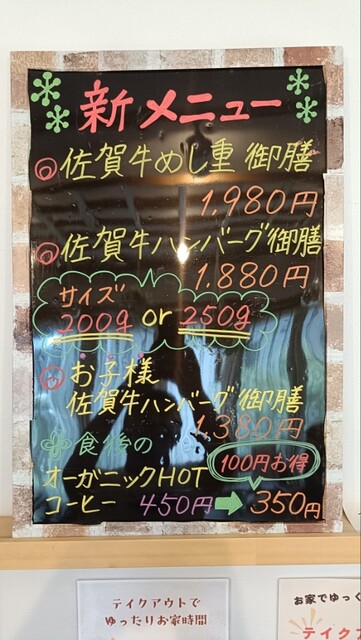 新メニュー
◎佐賀牛めし重御膳
1,980円
◎佐賀牛ハンバーグ御膳
1.880円
サイズ
200g or 250g
◎お子様
佐賀牛ハンバーグ御膳
1,380円
食後の
オーガニックHOT
100円お得
コーヒー 450円➡350円
テイクアウトで
ゆったりお家時間
お家でゆっく
テイク